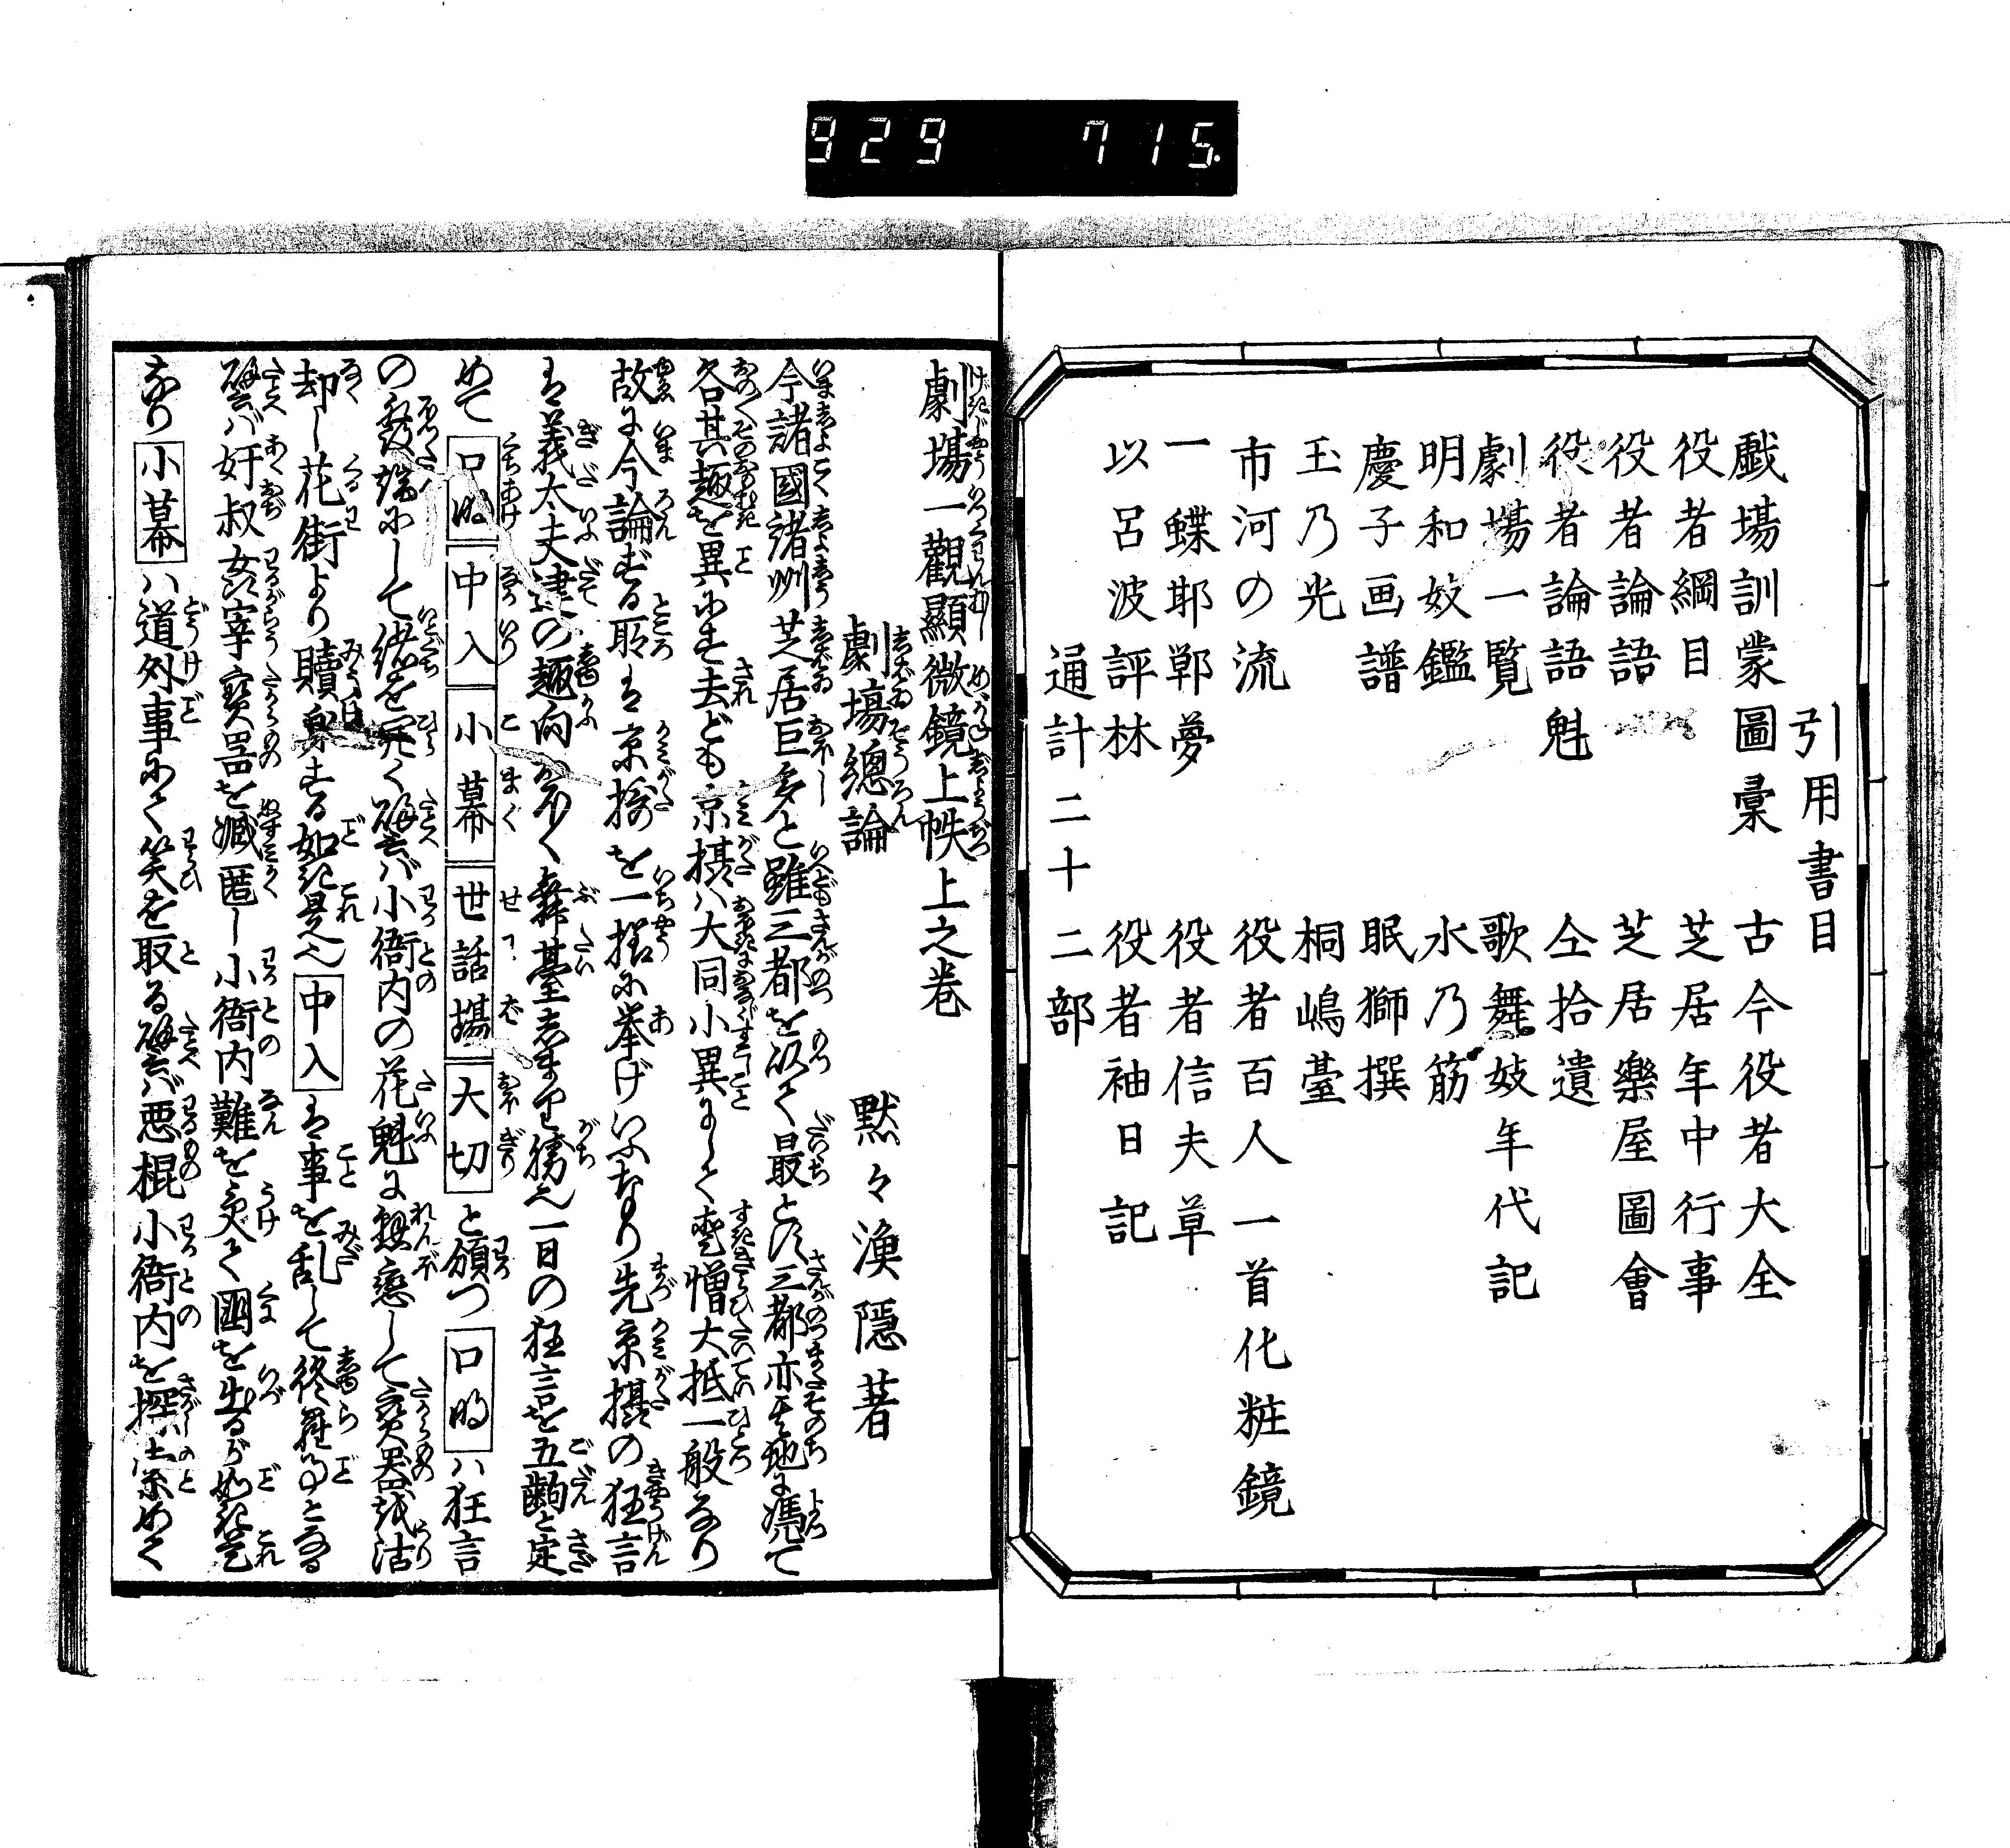 929 715.
引用書目
戯場訓蒙圖彙 古今役者大全
役者綱目 芝居年中行事
役者論語 芝居樂屋圖會
役者論語魁 仝拾遺
劇場一覧 歌舞妓年代記
明和妓鑑 水乃筋
慶子画譜 眠獅撰
玉乃光 桐嶋臺
市河の流 役者百人一首化粧鏡
一蝶邯鄲夢 役者信夫草
以呂波評林 役者袖日記
通計二十二部
劇場一觀顯微鏡上帙上之巻
劇場總論 黙々漁隠著
今諸國諸州芝居巨多と雖三都を以て最とス三都亦其地に憑て
各其趣を異にす去ども京摂ハ大同小異にして愛憎大抵一般なり
故に今論ずる所は京摂を一括に挙げいふなり先京摂の狂言
は義太夫達の趣向多く舞臺しまり勝也一日の狂言を五齣と定
めて 口明 中入 小幕 世話場 大切 と頒つ 口明 ハ狂言
の發端にして緒を開く譬バ小衙内の花魁に戀して寳器を沽
却し花街より贖身する如き是也 中入 は事を乱して終
譬バ奸叔宰寳器を藏匿し小衙内難を受て國を出るが如き是
なり 小幕 ハ道外事にて笑を取る譬バ悪棍小衙内を探